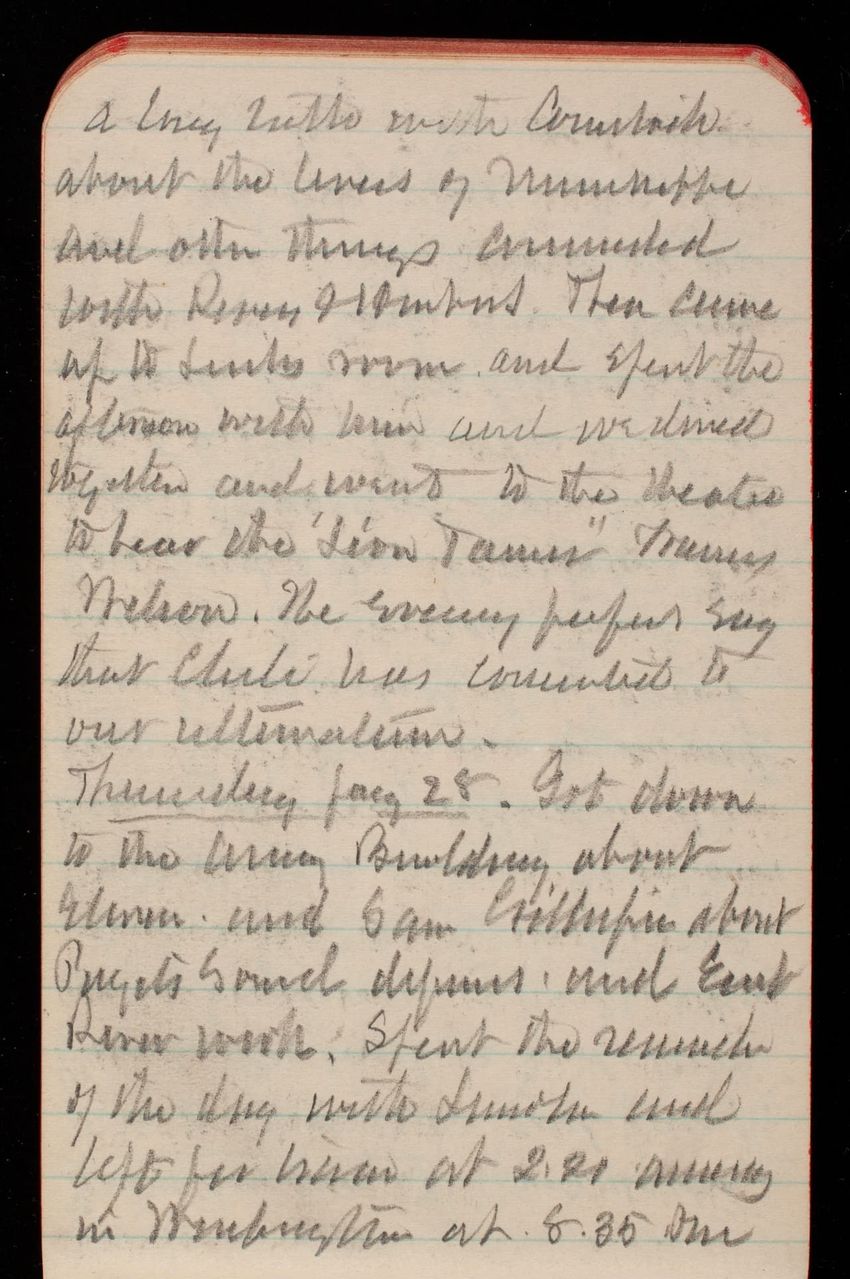 a long talk with Comstock
about the levees of Mississippi
and other things connected
with Rivers & Harbors. Then came
up to Links room and spent the
afternoon with him and we dined
together and went to the theater
to hear the "Lion Tamer" Francis
Wilson. The evening papers say
that Chili has consented to
our ultimatum.
Thursday Jany 28. Got down
to the Army Building about
Eleven and saw Gillespie about
Pugets Sound defenses and East
River work. Spent the remainder
of the day with and
left for home at arriving
in Washington at 8.35 Pm